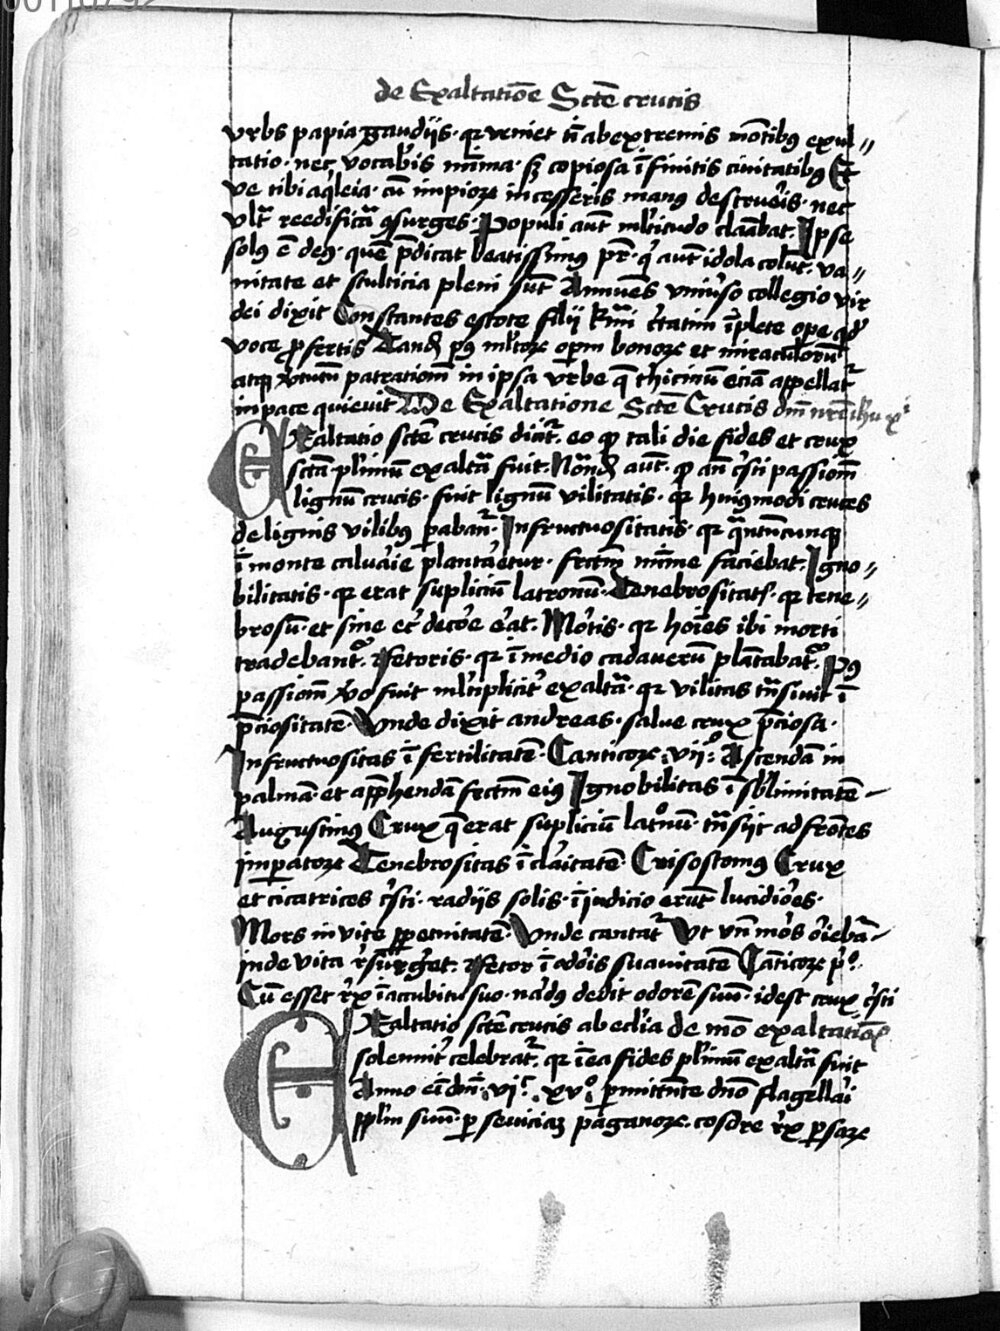 de Exaltatiōe Sctē crucis
vrbs papia gaudijs · qr veniet n̄ ab extremis mōtibꝫ exul〃
tatio · nec vocab'is mīma · sꝫ copiosa īfinitis ciuitatibꝫ Et
ve tibi aq̇leia · cū impioꝝ incesseris manꝰ destrueris · nec
vlt̄ reedificā ꝯsurges · Populi aut̄ ml'titudo clam̄bat · Ipse
solꝰ ē deꝰ · quē p̄dicat beatissimꝰ pr̄ · q' aut̄ idola colūt · va〃
nitate et stulticia pleni sūt Annuēs vniu'so collegio vir
dei dixit Constantes estote filij kr̄mi c'tatim īplete ope qd'
voce ꝓfertis Tandē pꝰ ml'toꝝ opm̄ bonoꝝ et miraculorū
atqꝫ v'tutū patrationē in ipsa vrbe q̄ thicinū eciā appellat'
in pace quieuit De Exaltatione Sctē Crucis dn̄i nr̄i ihu x'
Exaltatio sctē crucis dicit' · eo ꝙ tali die fides et crux
sctā pl'imū exaltā fuit · Nōndū aut̄ · ꝙ an̄ c'sti passionē
lignū crucis · fuit lignū vilitatis · qr huiꝰmodi cruces
de lignis vilibꝫ ꝑabant' · Infructuositatis · qr q̄ntūcunqꝫ
ī monte caluarie plantaretur · fructū mīme faciebat · Igno〃
bilitatis · qr erat supliciū latronū · Tenebrositatis · qr tene〃
brosū · et sine decore erat · Mortis · qr hoīes ibi morti
tradebant' · Fetoris · qr ī medio cadauerū plātabat' · Pꝰ
passionē v'o fuit ml'tiplicit' exaltā · qr vilitas tn̄siuit ī
p̄ciositatē Vnde dixit andreas · salue crux p̄ciosa ·
Infructuositas ī fertilitatē · Canticoꝝ · vij° · Ascendā in
palmā · et app̄hendā fructū eiꝰ Ignobilitas ī sb'limitatē
Augustinꝰ Crux q̄ erat supliciū latronū · tn̄sijt ad frōtes
imꝑatoꝝ Tenebrositas ī claritatē · Crisostomꝰ Crux
et cicatrices c'sti · radijs solis · ī iudicio erūt lucidiores ·
Mors in vite ꝑpetuitatē · Vnde cantat' Vt vn̄ mors oriebā
inde vita r'surg'et · Fetor ī odoris suauitatē Cāticoꝝ p'° ·
Cū esset rex ī accubitu suo · nardꝰ dedit odorē suū · idest crux c'sti
Exaltatio sctē crucis ab eccl'ia de mō exaltatiōe
solennit' celebrat' · qr ī ea fides pl'imū exaltā fuit
Anno · vi° · xv° · ꝑmittente dn̄o flagellari
ppl'm suū · ꝑ seuiciā paganoꝝ · cosdre rex ꝑsaꝝ